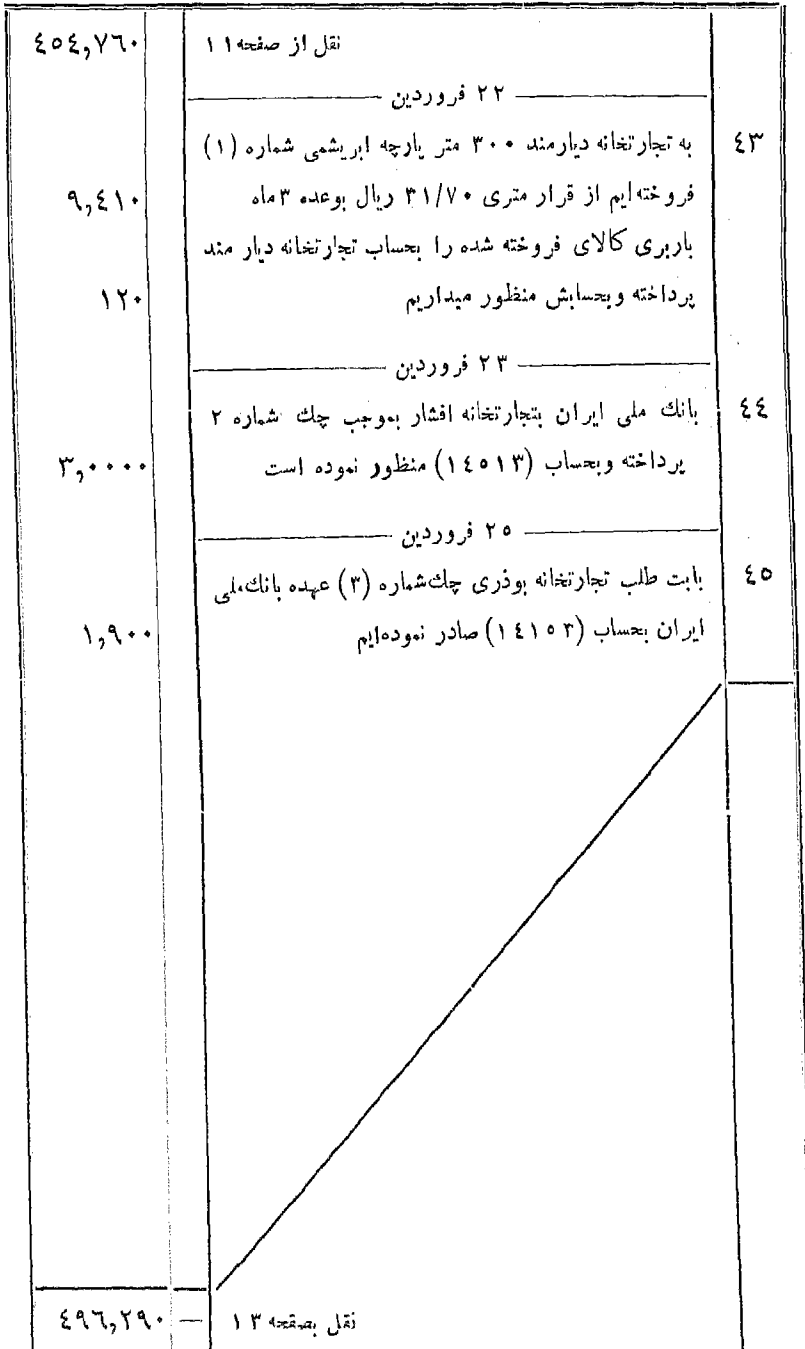 نقل از صفحه ۱۱ ٤٥٤,٧٦٠
۲۲ فروردین
٤٣ به تجارتخانه دیارمند ۳۰۰ متر پارچه ابریشمی شماره (۱)
فروخته‌ایم از قرار متری ۳۱/۷۰ ریال بوعده ۳ ماه ۹,٤۱۰
باربری کالای فروخته شده را بحساب تجارتخانه دیار مند
پرداخته وبحسابش منظور میداریم ۱۲۰
۲۳ فروردین
٤٤ بانك ملی ایران بتجارتخانه افشار بموجب چك شماره ۲
پرداخته وبحساب (۱٤٥۱۳) منظور نموده است ۳,۰۰۰۰
۲٥ فروردین
٤٥ بابت طلب تجارتخانه بوذری چك شماره (۳) عهده بانك ملی
ایران بحساب (۱٤۱٥۳) صادر نموده‌ایم ۱,۹۰۰
نقل بصفحه ۱۳ — ٤۹٦,۲۹۰